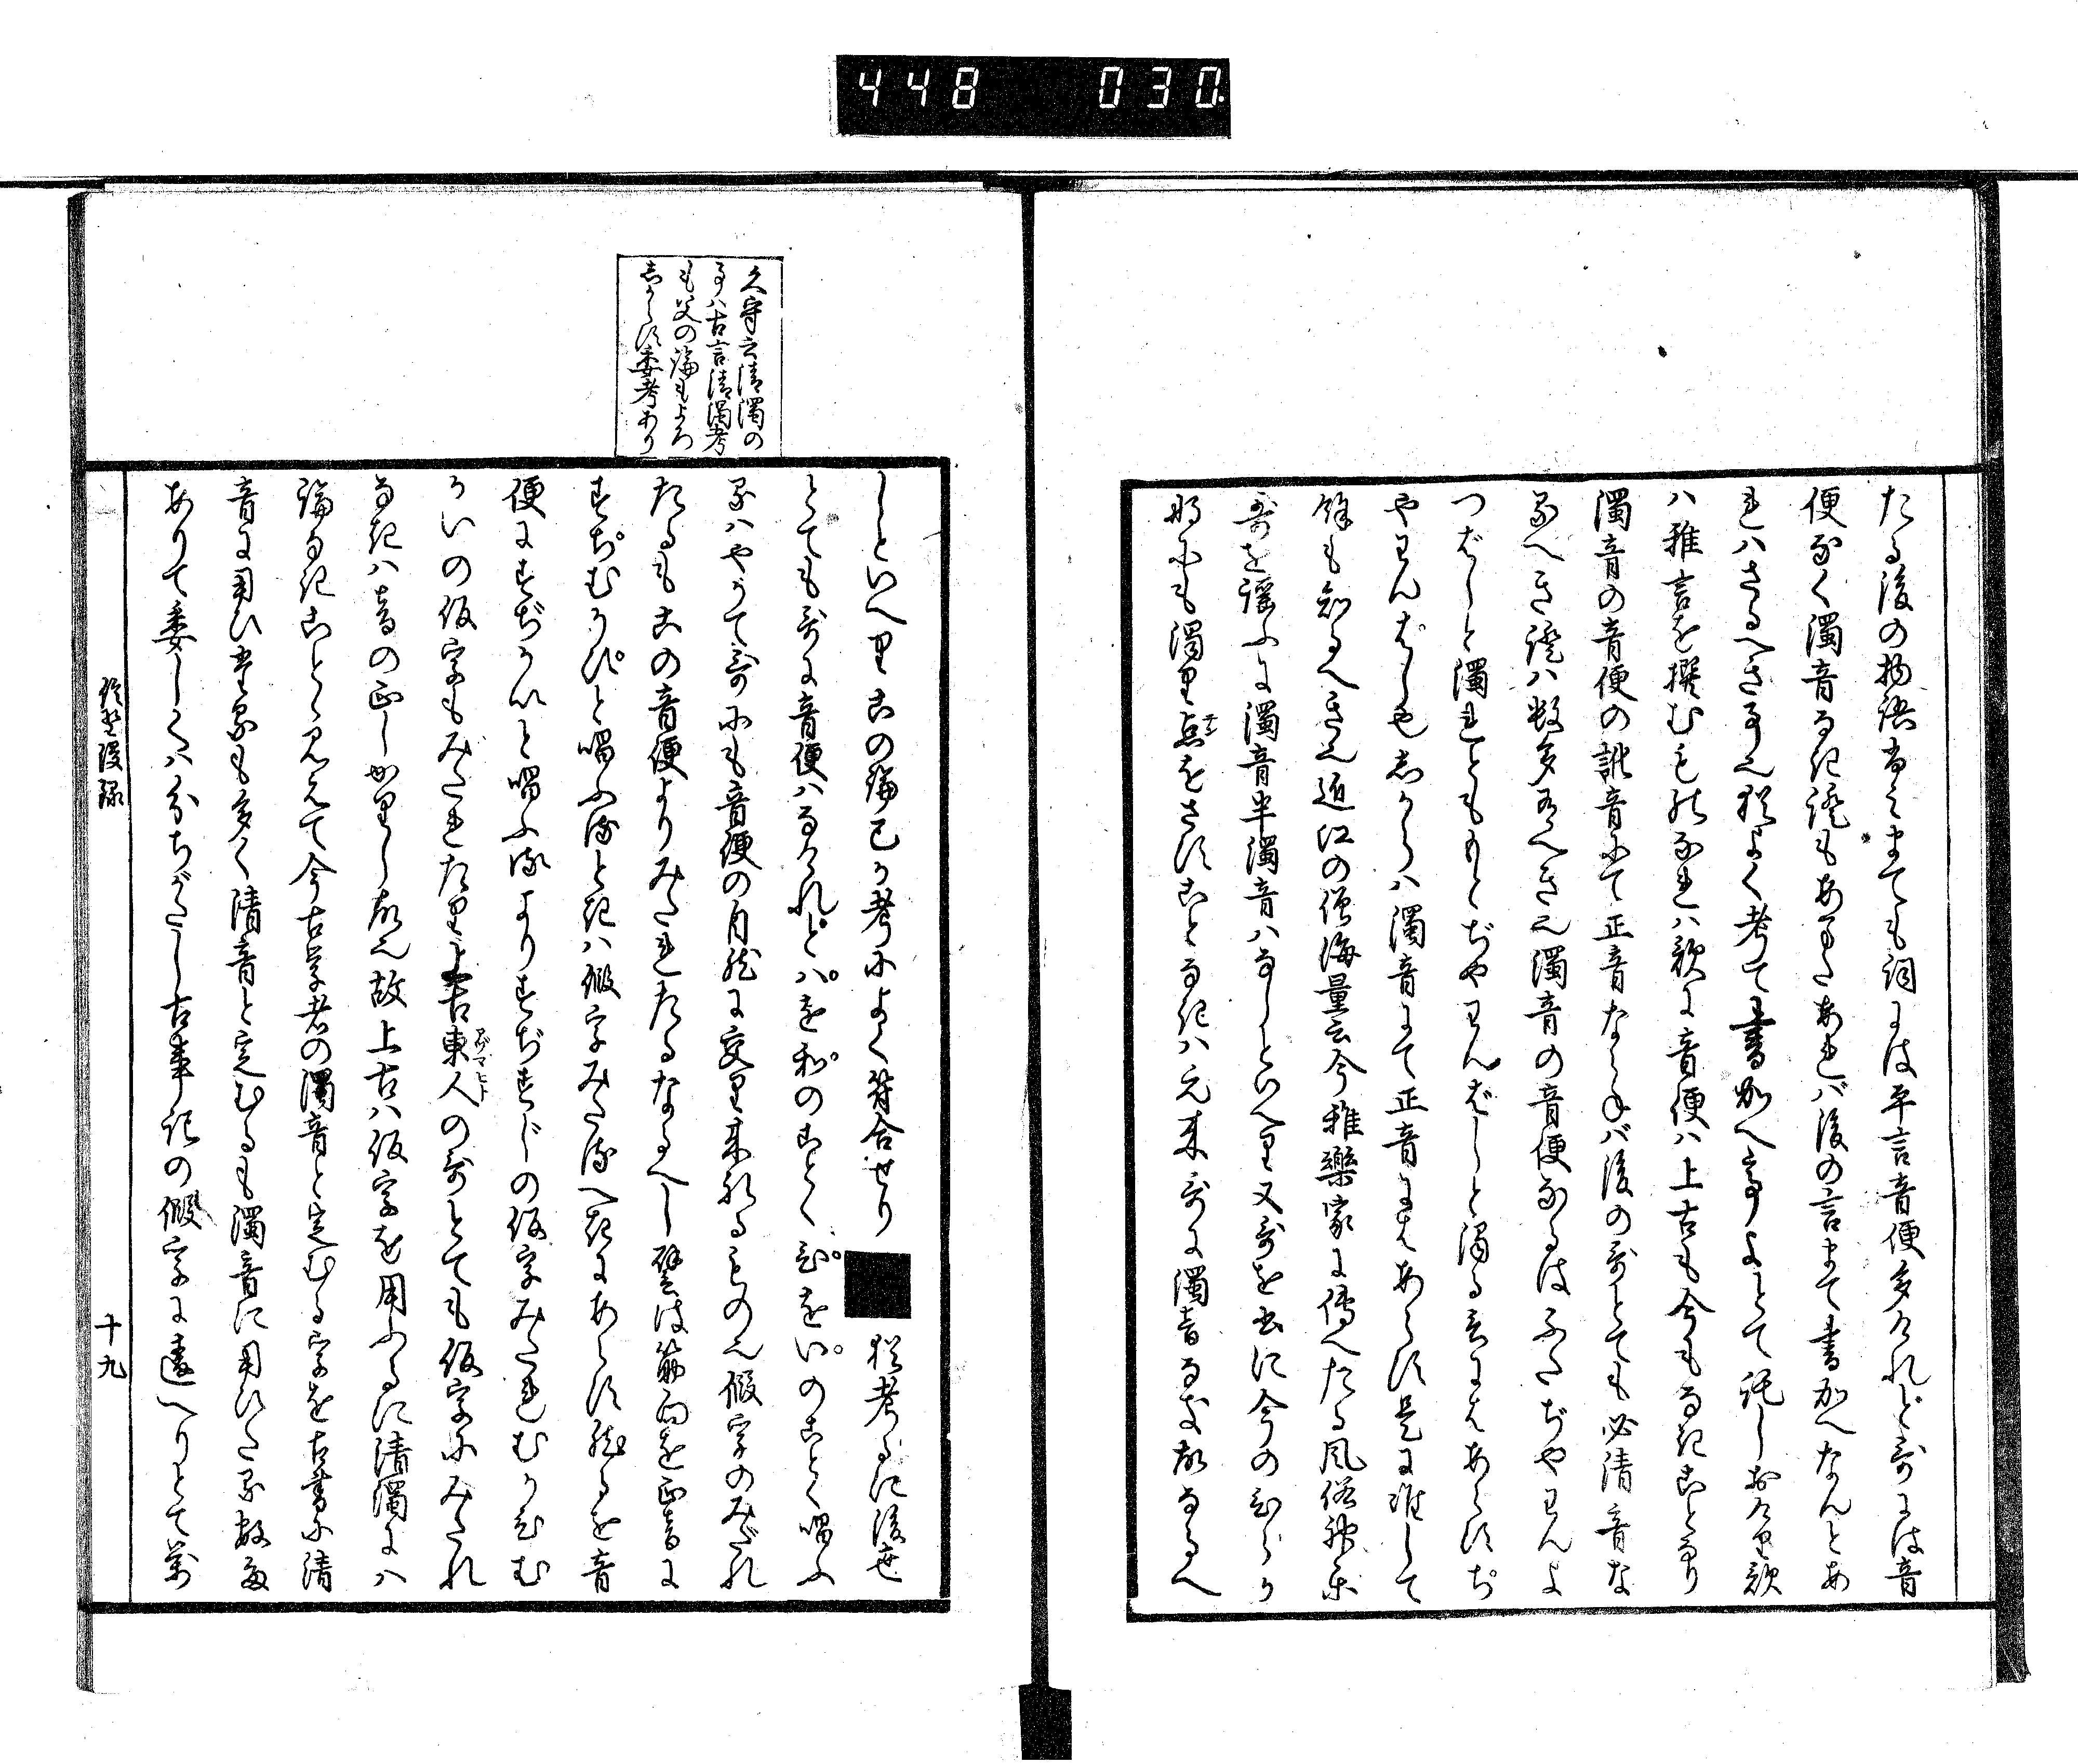 448 030
たる後の物語書にまても詞には平言音便多けれど哥には音
便なく濁音なき證もあまたあれバ後の言まて書加へなんとあ
れハさるへき事也猶よく考て書加へ亭よとて託しおけり歌
ハ雅言を撰むものなれハ歌に音便ハ上古も今もなきことなり
濁音の音便の訛音にて正音ならねバ後の哥とても必清音な
るへき證ハ数多有へき也濁音の音便なるはふたぢやわんよ
つぢやわんばしと濁る言にはあらすぢ
やわんばしも也しからハ濁音にて正音にはあらす是に准して
餘も知るへき也近江の僧海量云今雅樂家に傳へたる風俗神楽
哥を謡ふに濁音半濁音ハなしといへり又哥を書に今のひらか
なにも濁り点をさすことなきハ元来哥に濁音なき故なるへ
しといへりこの論己か考によく符合せり 猶考るに後世
とても哥に音便ハなけれとバを和のことくびをいのことく唱ふ
るハやかて哥にも音便の自然に交り来れるもの也假字のみだれ
たるもこの音便よりみたれたるなるへし譬は筋向を正音に
すぢむかひと唱ふるときハ假字みたるへきにあらす然るを音
便にすぢかひと唱ふるよりすぢすじの仮字みたれむかひむ
かいの仮字もみだれたり上古東人の哥とても仮字にみたれ
なきハ音の正しかりし故也故上古ハ仮字を用ふるに清濁にハ
論なきことゝ見えて今古学者の濁音と定むる字を古書に清
音に用ひたるも多く清音と定むるも濁音に用ひたる数多
ありて委しくハ分ちがたし古事記の假字に違へりとて万
久守云清濁の
事ハ古言清濁考
も父の論もよろ
しからす委考あり
十九